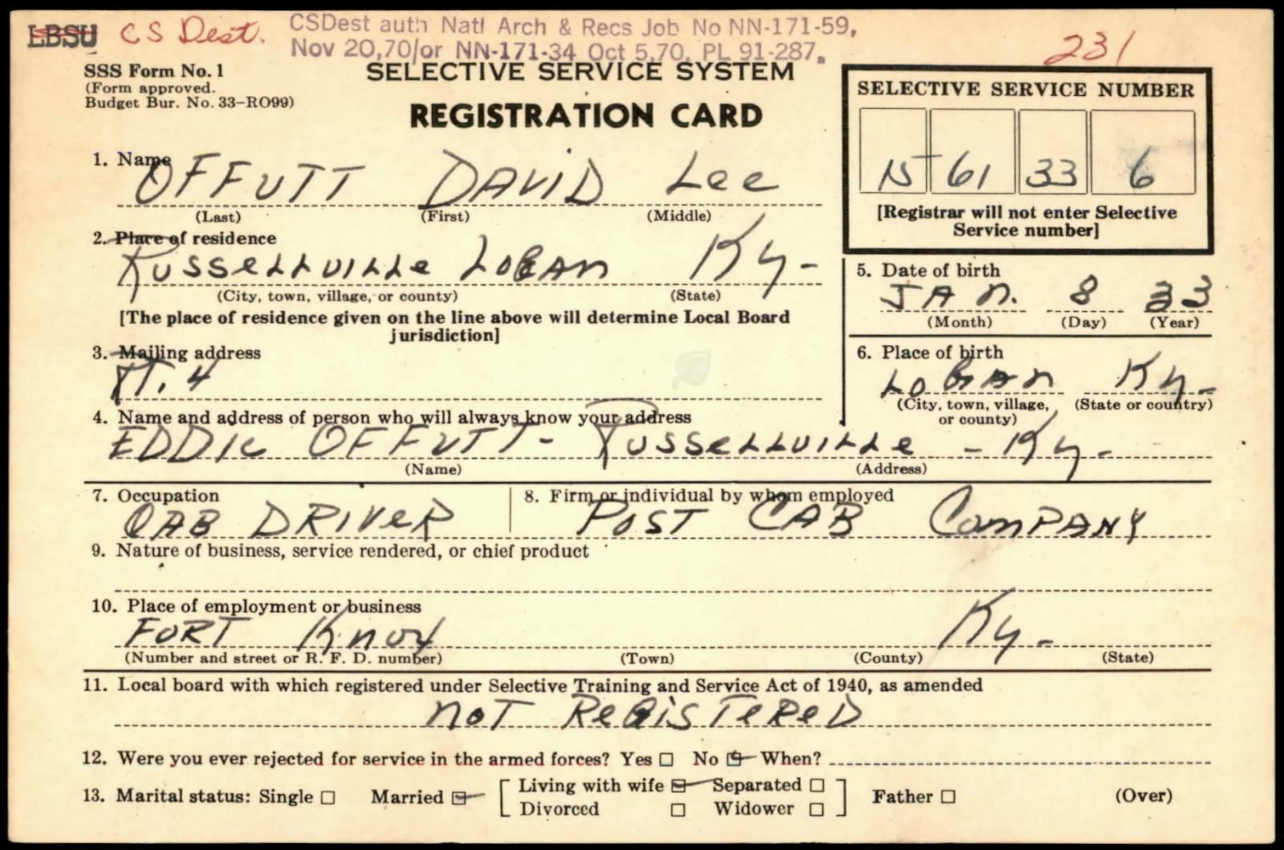 LBSU CS Dest. CSDest auth Natl Arch & Recs Job No NN-171-59,
Nov 20,70/or NN-171-34 Oct 5,70, PL 91-287.
231
SSS Form No. 1
(Form approved.
Budget Bur. No. 33-RO99)
SELECTIVE SERVICE SYSTEM
REGISTRATION CARD
SELECTIVE SERVICE NUMBER
15 61 33 6
[Registrar will not enter Selective
Service number]
1. Name OFFUTT DAVID Lee
(Last) (First) (Middle)
2. Place of residence
Russellville LOGAN Ky-
(City, town, village, or county) (State)
[The place of residence given on the line above will determine Local Board
jurisdiction]
5. Date of birth
JAN. 8 33
(Month) (Day) (Year)
3. Mailing address
Rt. 4
6. Place of birth
LOGAN Ky-
(City, town, village, or county) (State or country)
4. Name and address of person who will always know your address
EDDIE OFFUTT- Russellville - Ky-
(Name) (Address)
7. Occupation
CAB DRIVER
8. Firm or individual by whom employed
POST CAB COMPANY
9. Nature of business, service rendered, or chief product
10. Place of employment or business
FORT Knox Ky-
(Number and street or R. F. D. number) (Town) (County) (State)
11. Local board with which registered under Selective Training and Service Act of 1940, as amended
NOT REGISTERED
12. Were you ever rejected for service in the armed forces? Yes □ No □ When?
13. Marital status: Single □ Married □ [ Living with wife □ Separated □ ] Father □ (Over)
Divorced □ Widower □